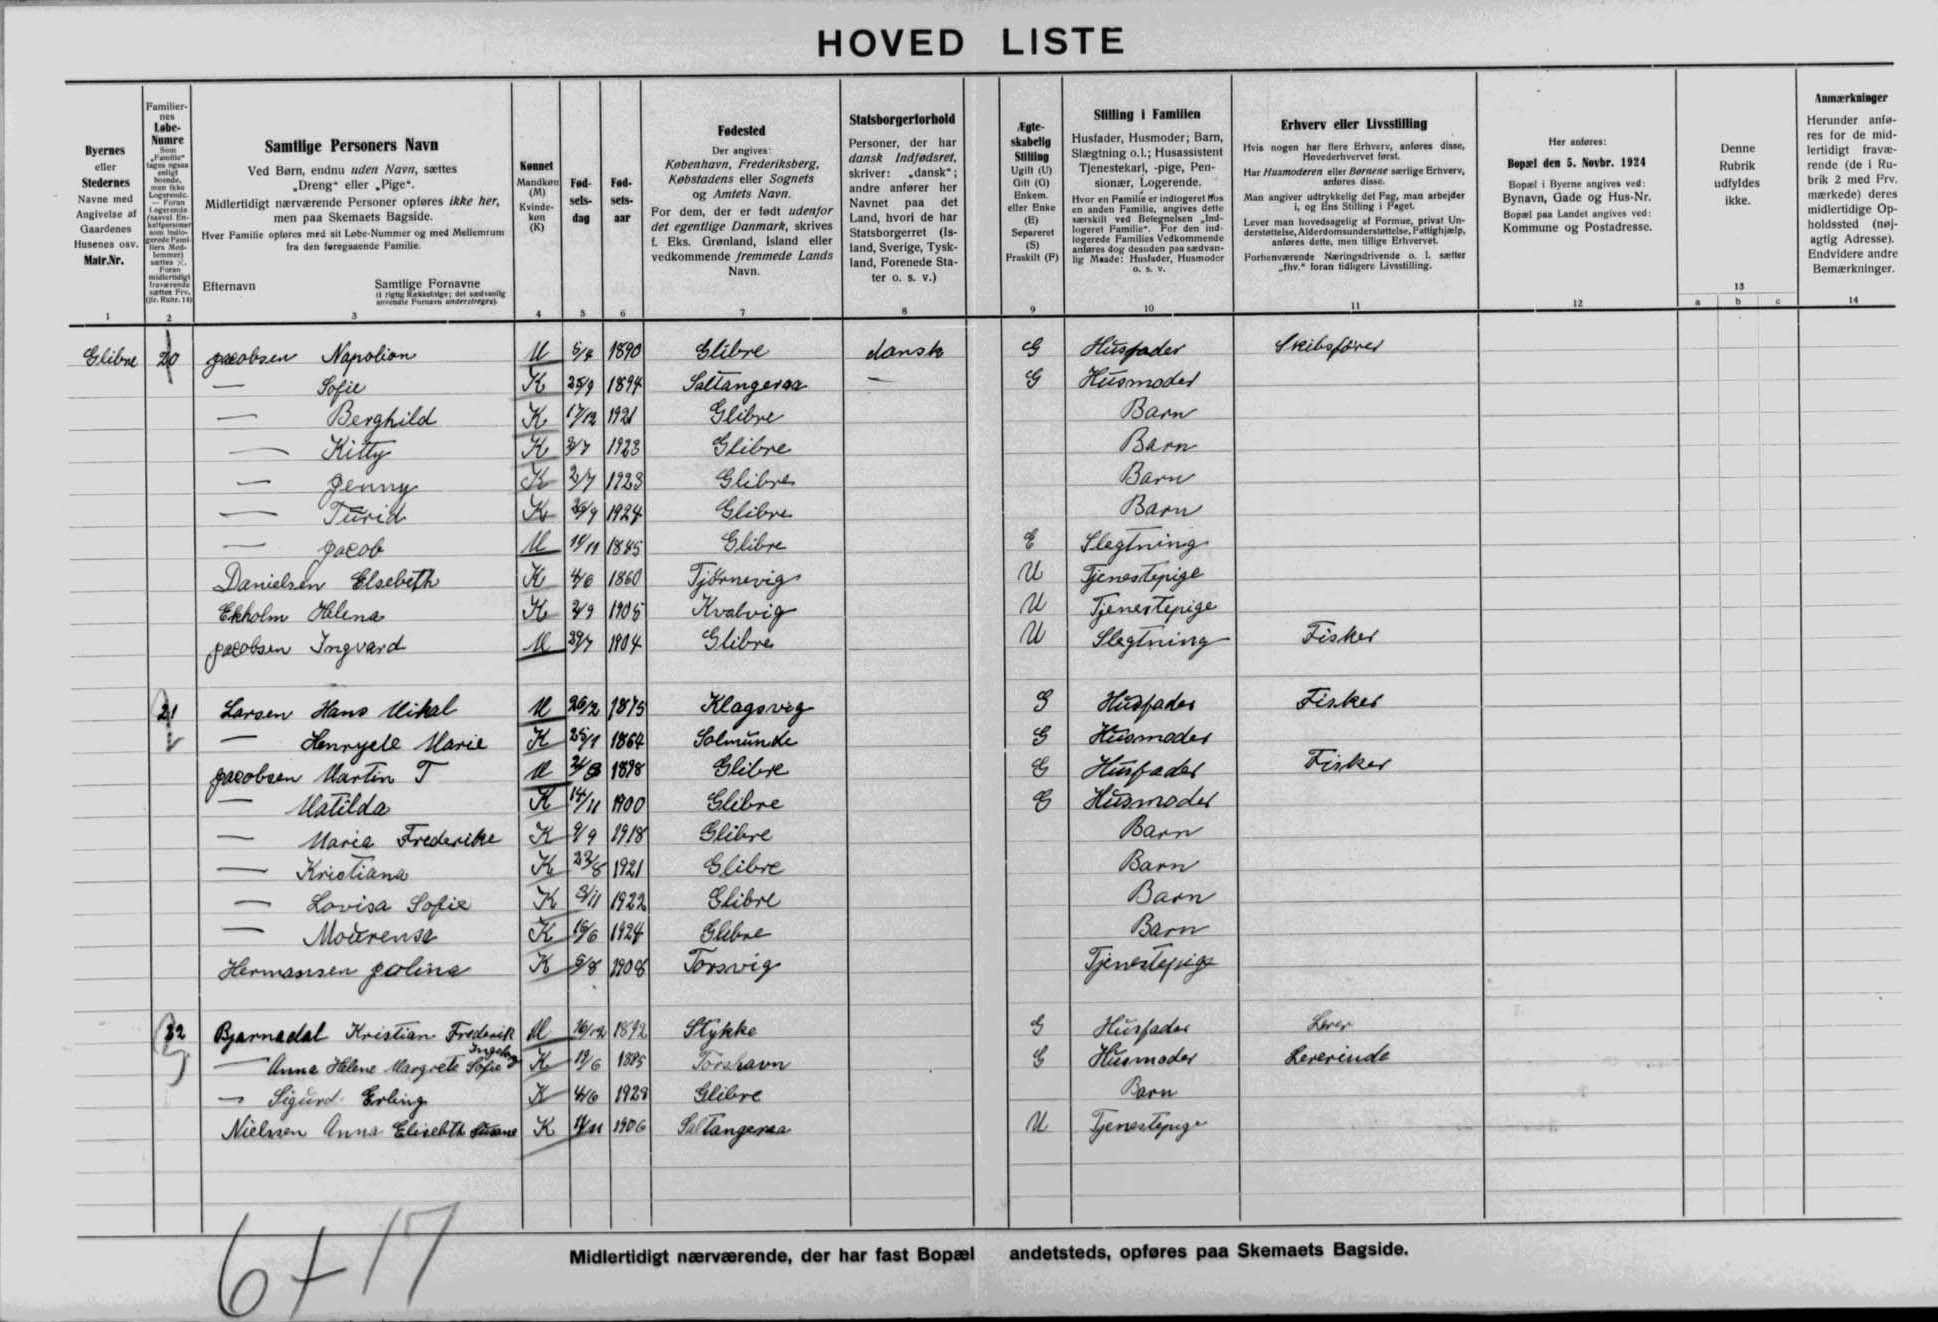 HOVED LISTE
Byernes
eller
Stedernes
Navne med
Angivelse af
Gaardenes
Husenes osv.
Matr.Nr.
1
Familier-
nes
Løbe-
Numre
2
Samtlige Personers Navn
Ved Børn, endnu uden Navn, sættes
„Dreng“ eller „Pige“.
Midlertidigt nærværende Personer opføres ikke her,
men paa Skemaets Bagside.
Hver Familie opføres med sit Løbe-Nummer og med Mellemrum
fra den foregaaende Familie.
Efternavn
Samtlige Fornavne
(i rigtig Rækkefølge; det sædvanlig
anvendte Fornavn understreges).
3
Kønnet
Mandkøn
(M)
Kvinde-
køn
(K)
4
Fød-
sels-
dag
5
Fød-
sels-
aar
6
Fødested
Der angives:
København, Frederiksberg,
Købstadens eller Sognets
og Amtets Navn.
For dem, der er født udenfor
det egentlige Danmark, skrives
f. Eks. Grønland, Island eller
vedkommende fremmede Lands
Navn.
7
Statsborgerforhold
Personer, der har
dansk Indfødsret,
skriver: „dansk“;
andre anfører her
Navnet paa det
Land, hvori de har
Statsborgerret (Is-
land, Sverige, Tysk-
land, Forenede Sta-
ter o. s. v.)
8
Ægte-
skabelig
Stilling
Ugift (U)
Gift (G)
Enkem.
eller Enke
(E)
Separeret
(S)
Fraskilt (F)
9
Stilling i Familien
Husfader, Husmoder; Barn,
Slægtning o.l.; Husassistent
Tjenestekarl, -pige, Pen-
sionær, Logerende.
Hvor en Familie er indlogeret hos
en anden Familie, angives dette
særskilt ved Betegnelsen „Ind-
logeret Familie“. For den ind-
logerede Families Vedkommende
anføres dog desuden paa sædvan-
lig Maade: Husfader, Husmoder
o. s. v.
10
Erhverv eller Livsstilling
Hvis nogen har flere Erhverv, anføres disse,
Hovederhvervet først.
Har Husmoderen eller Børnene særlige Erhverv,
anføres disse.
Man angiver udtrykkelig det Fag, man arbejder
i, og Ens Stilling i Faget.
Lever man hovedsagelig af Formue, privat Un-
derstøttelse, Alderdomsunderstøttelse, Fattighjælp,
anføres dette, men tillige Erhvervet.
Forhenværende Næringsdrivende o. l. sætter
„fhv.“ foran tidligere Livsstilling.
11
Her anføres:
Bopæl den 5. Novbr. 1924
Bopæl i Byerne angives ved:
Bynavn, Gade og Hus-Nr.
Bopæl paa Landet angives ved:
Kommune og Postadresse.
12
Denne
Rubrik
udfyldes
ikke.
13
a b c
Anmærkninger
Herunder anfø-
res for de mid-
lertidigt fravæ-
rende (de i Ru-
brik 2 med Frv.
mærkede) deres
midlertidige Op-
holdssted (nøj-
agtig Adresse).
Endvidere andre
Bemærkninger.
14
Glibre 20 Jacobsen Napolion M 5/4 1890 Glibre dansk G Husfader Skibsfører
— Sofie K 25/9 1894 Saltangeraa — G Husmoder
— Berghild K 17/12 1921 Glibre Barn
— Kitty K 2/7 1923 Glibre Barn
— Jenny K 2/7 1923 Glibre Barn
— Turid K 1924 Glibre Barn
— Jacob M 10/11 1845 Glibre E Slegtning
Danielsen Elsebeth K 4/6 1860 Tjörnevig U Tjenestepige
Ekholm Helena K 2/9 1905 Kvalvig U Tjenestepige
Jacobsen Ingvard M 29/7 1904 Glibre U Slegtning Fisker
21 Larsen Hans Mikal M 26/2 1875 Klagsvig G Husfader Fisker
— Marie K 25/1 1864 Solmunde G Husmoder
Jacobsen Martin T M 1898 Glibre G Husfader Fisker
— Matilda K 14/11 1900 Glibre G Husmoder
— Maria Frederike K 9/9 1918 Glibre Barn
— Kristiana K 23/8 1921 Glibre Barn
— Lovisa Sofie K 3/11 1922 Glibre Barn
— Mourensa K 16/6 1924 Glibre Barn
Hermansen Jolina K 5/8 1908 Torsvig Tjenestepige
22 Bjarnadal Kristian Frederik M 16/12 1892 Stykke G Husfader Lerer
— Anna Helene Margrete Sofie Ingeborg K 19/6 1895 Torshavn G Husmoder Lererinde
— Sigurd Erling K 4/6 1923 Glibre Barn
Nielssen Anna Elisebth Susane K 11/11 1906 Saltangeraa U Tjenestepige
6+17
Midlertidigt nærværende, der har fast Bopæl andetsteds, opføres paa Skemaets Bagside.